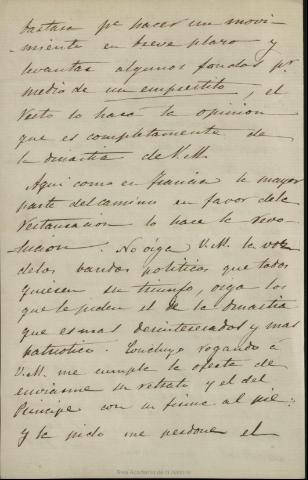 bastara pª hacer un movi-
miento en breve plazo y
levantar algunos fondos pr.
medio de un empréstito, el
resto lo hará la opinion
que es completamente de
la dinastia de V.M.
Aqui como en Francia la mayor
parte del camino en favor de la
restauracion lo hace la revo-
lucion. No oiga V.M. la voz
de los bandos politicos que todos
quieren su triunfo, oiga los
que le piden el de la dinastia
que es mas desinteresado y mas
patriotico. Concluyo rogando á
V.M. me cumpla la oferta de
enviarme su retrato y el del
Principe con su firma al pie:
Y le pido me perdone el
Real Academia de la Historia